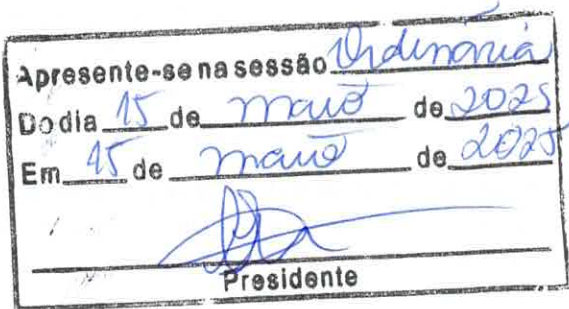 Apresente-se na sessão Ordinária
Do dia 15 de maio de 2025
Em 15 de maio de 2025
Presidente